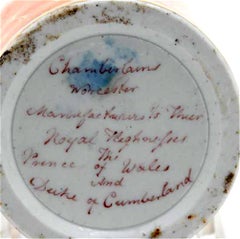 Chamberlains
Worcester
Manufacturers to their
Royal Highnesses
The
Prince of Wales
And
Duke of Cumberland